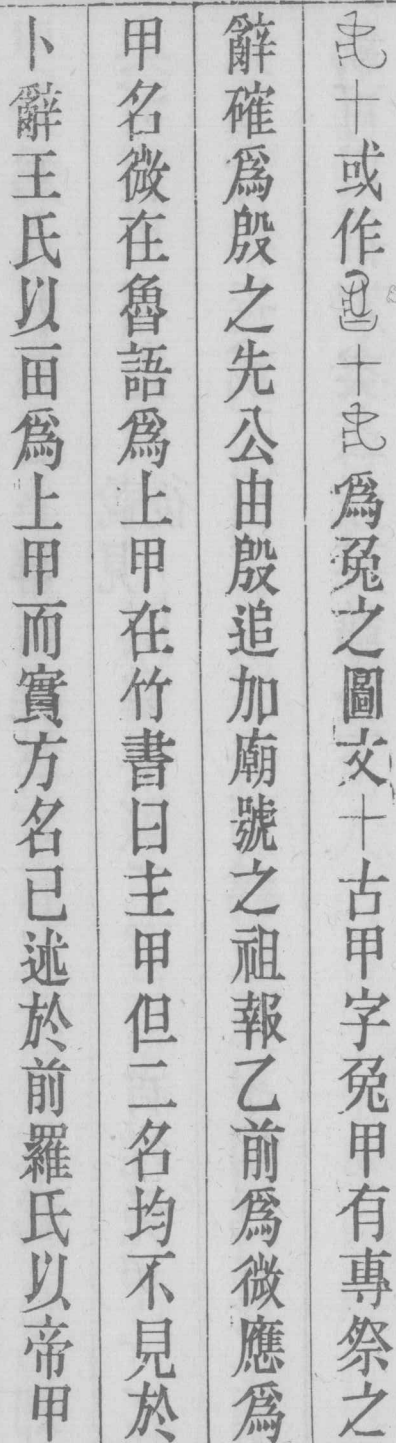 十或作十為兔之圖文十古甲字兔甲有專祭之
辭確為殷之先公由殷追加廟號之祖報乙前為微應為
甲名微在魯語為上甲在竹書曰主甲但二名均不見於
卜辭王氏以田為上甲而實方名已述於前羅氏以帝甲